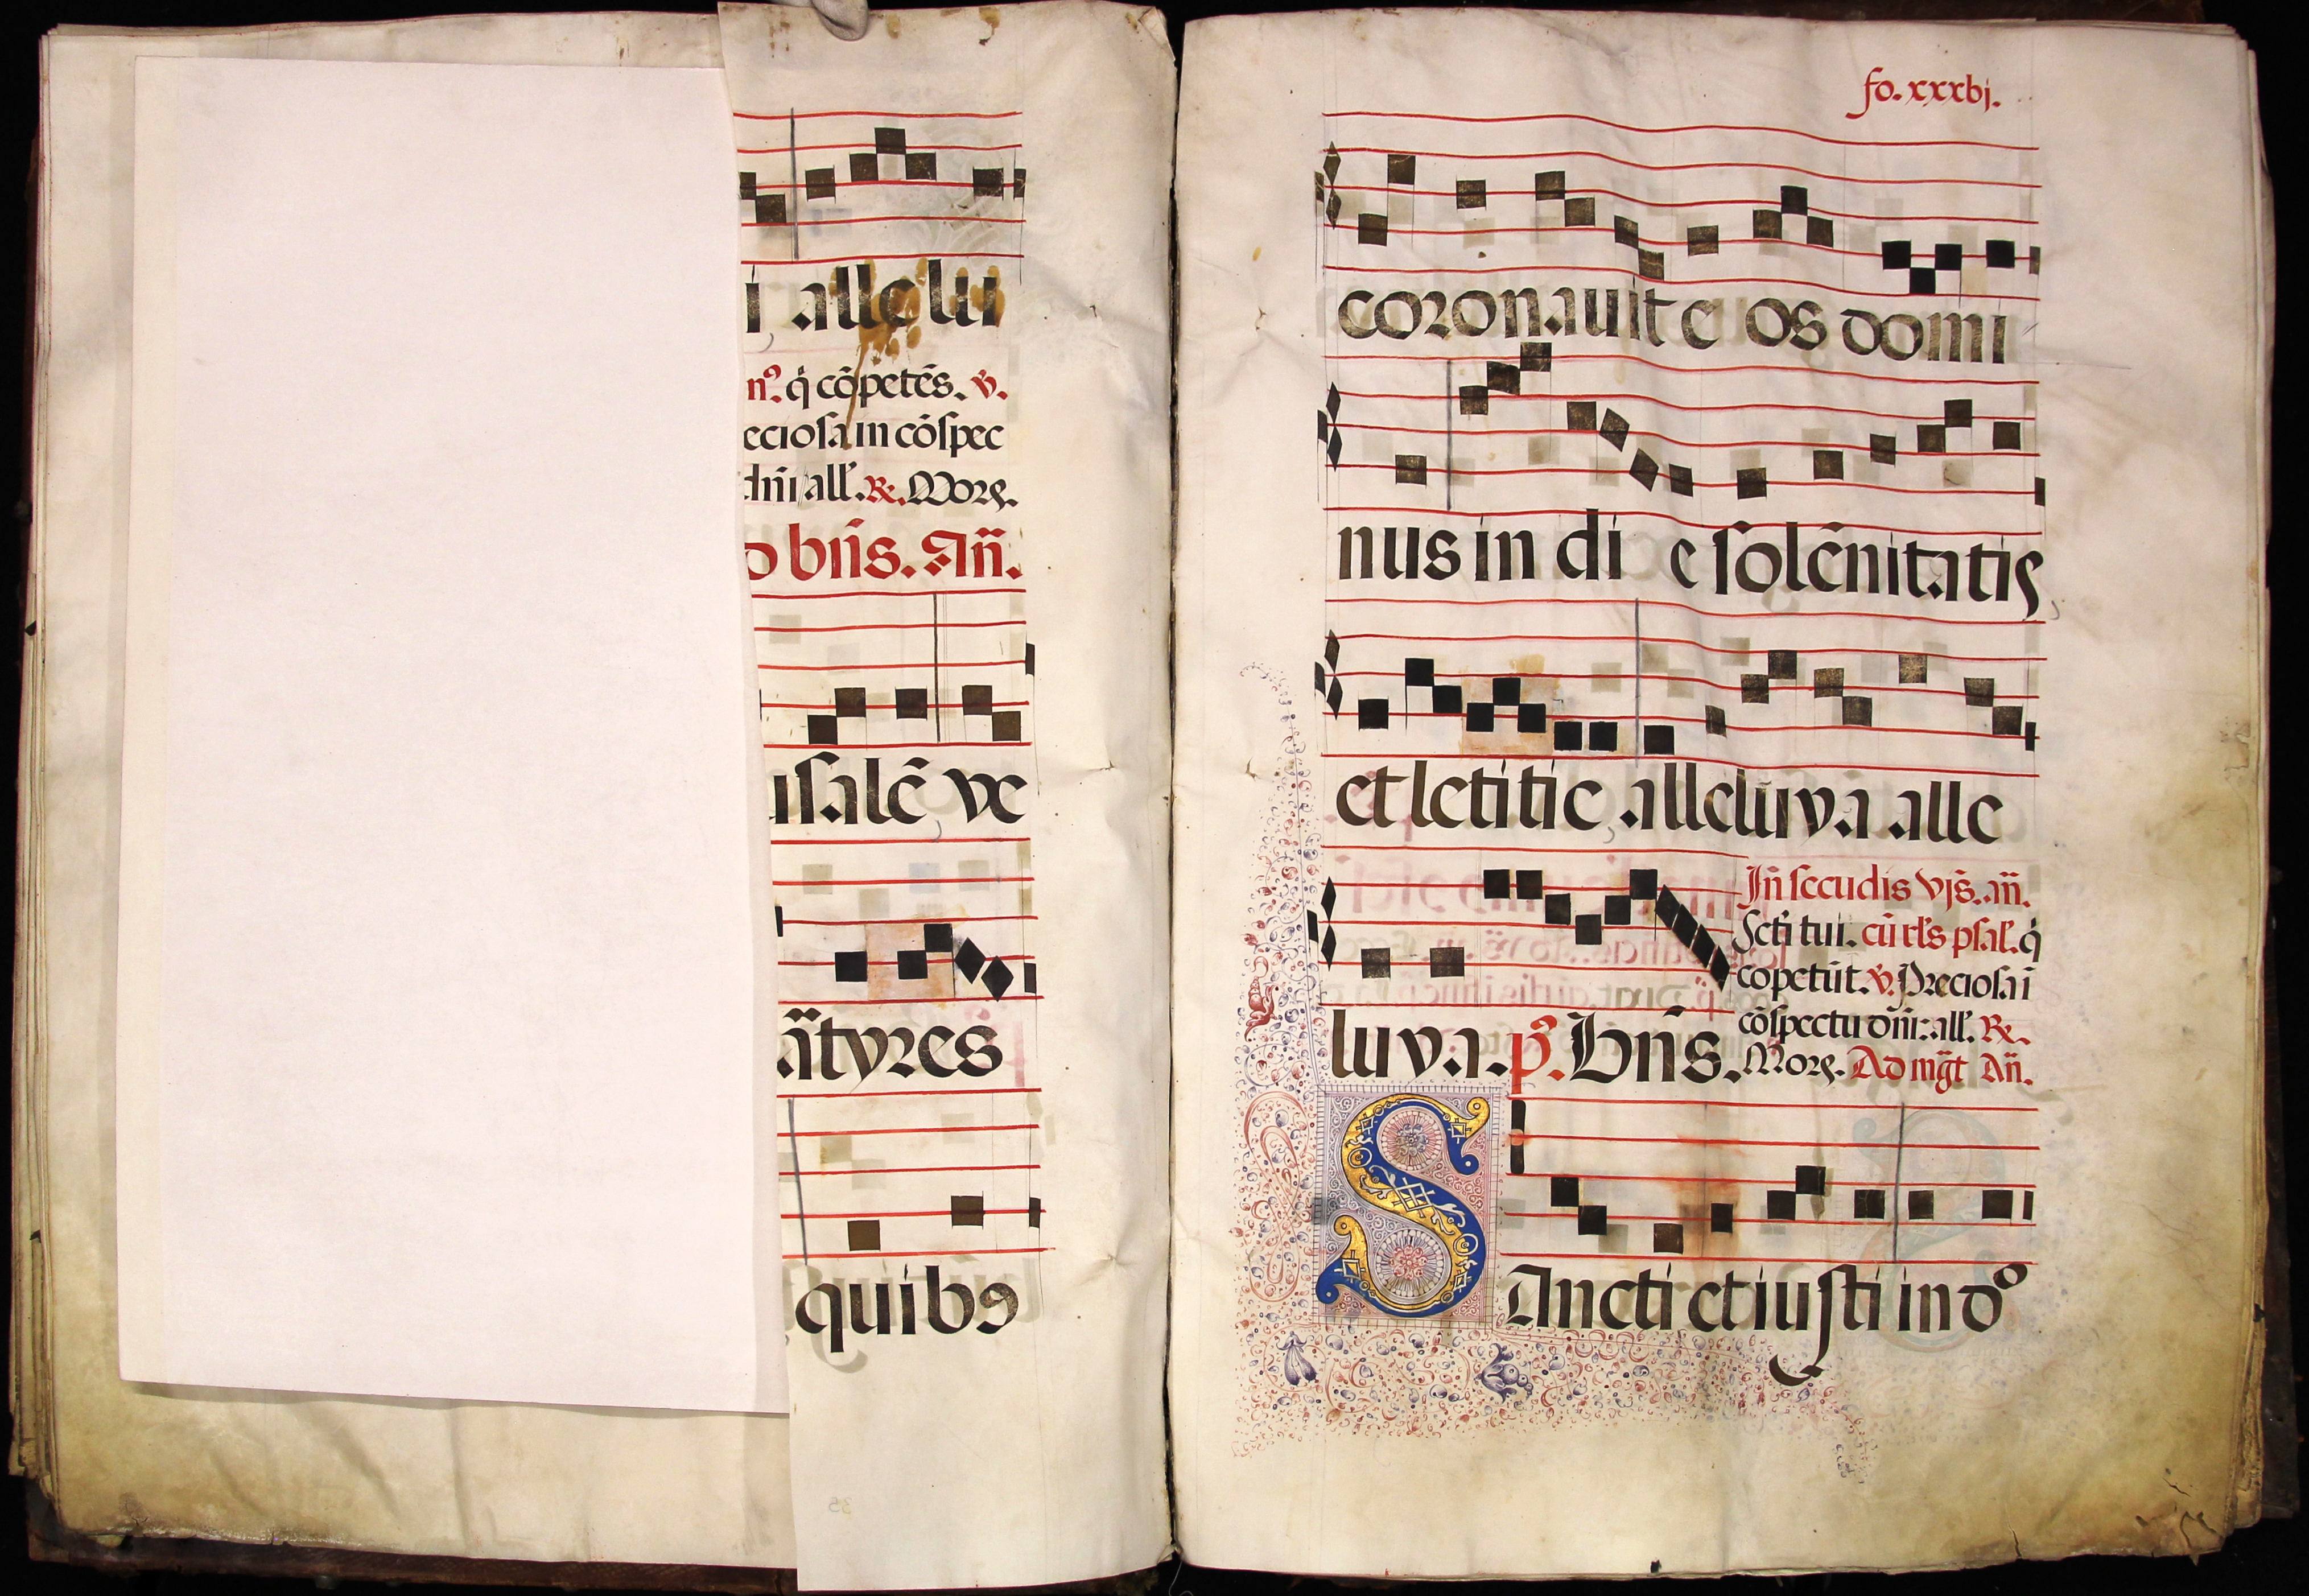 i alle lu
nꝰ. q̈ cōpetēs. v̄.
eciosa in cōspec
dñi all'. ℞. Morꝭ.
o bñs. Añ.
usalē ve
ãtyres
quibꝯ
fo. xxxbj.
coronauit e os domi
nus in di e solēnitatis
et letitie alleluya alle
luya. p̄s. Bñs.
Iñ secūdis vjs̄. añ.
Scti tui. cū rl's psal'. q̈
copetūt. v̄. Preciosa ī
cōspectu dñi: all'. ℞.
Morꝭ. Ad mg̃t Añ.
SAncti et iusti in dº
35